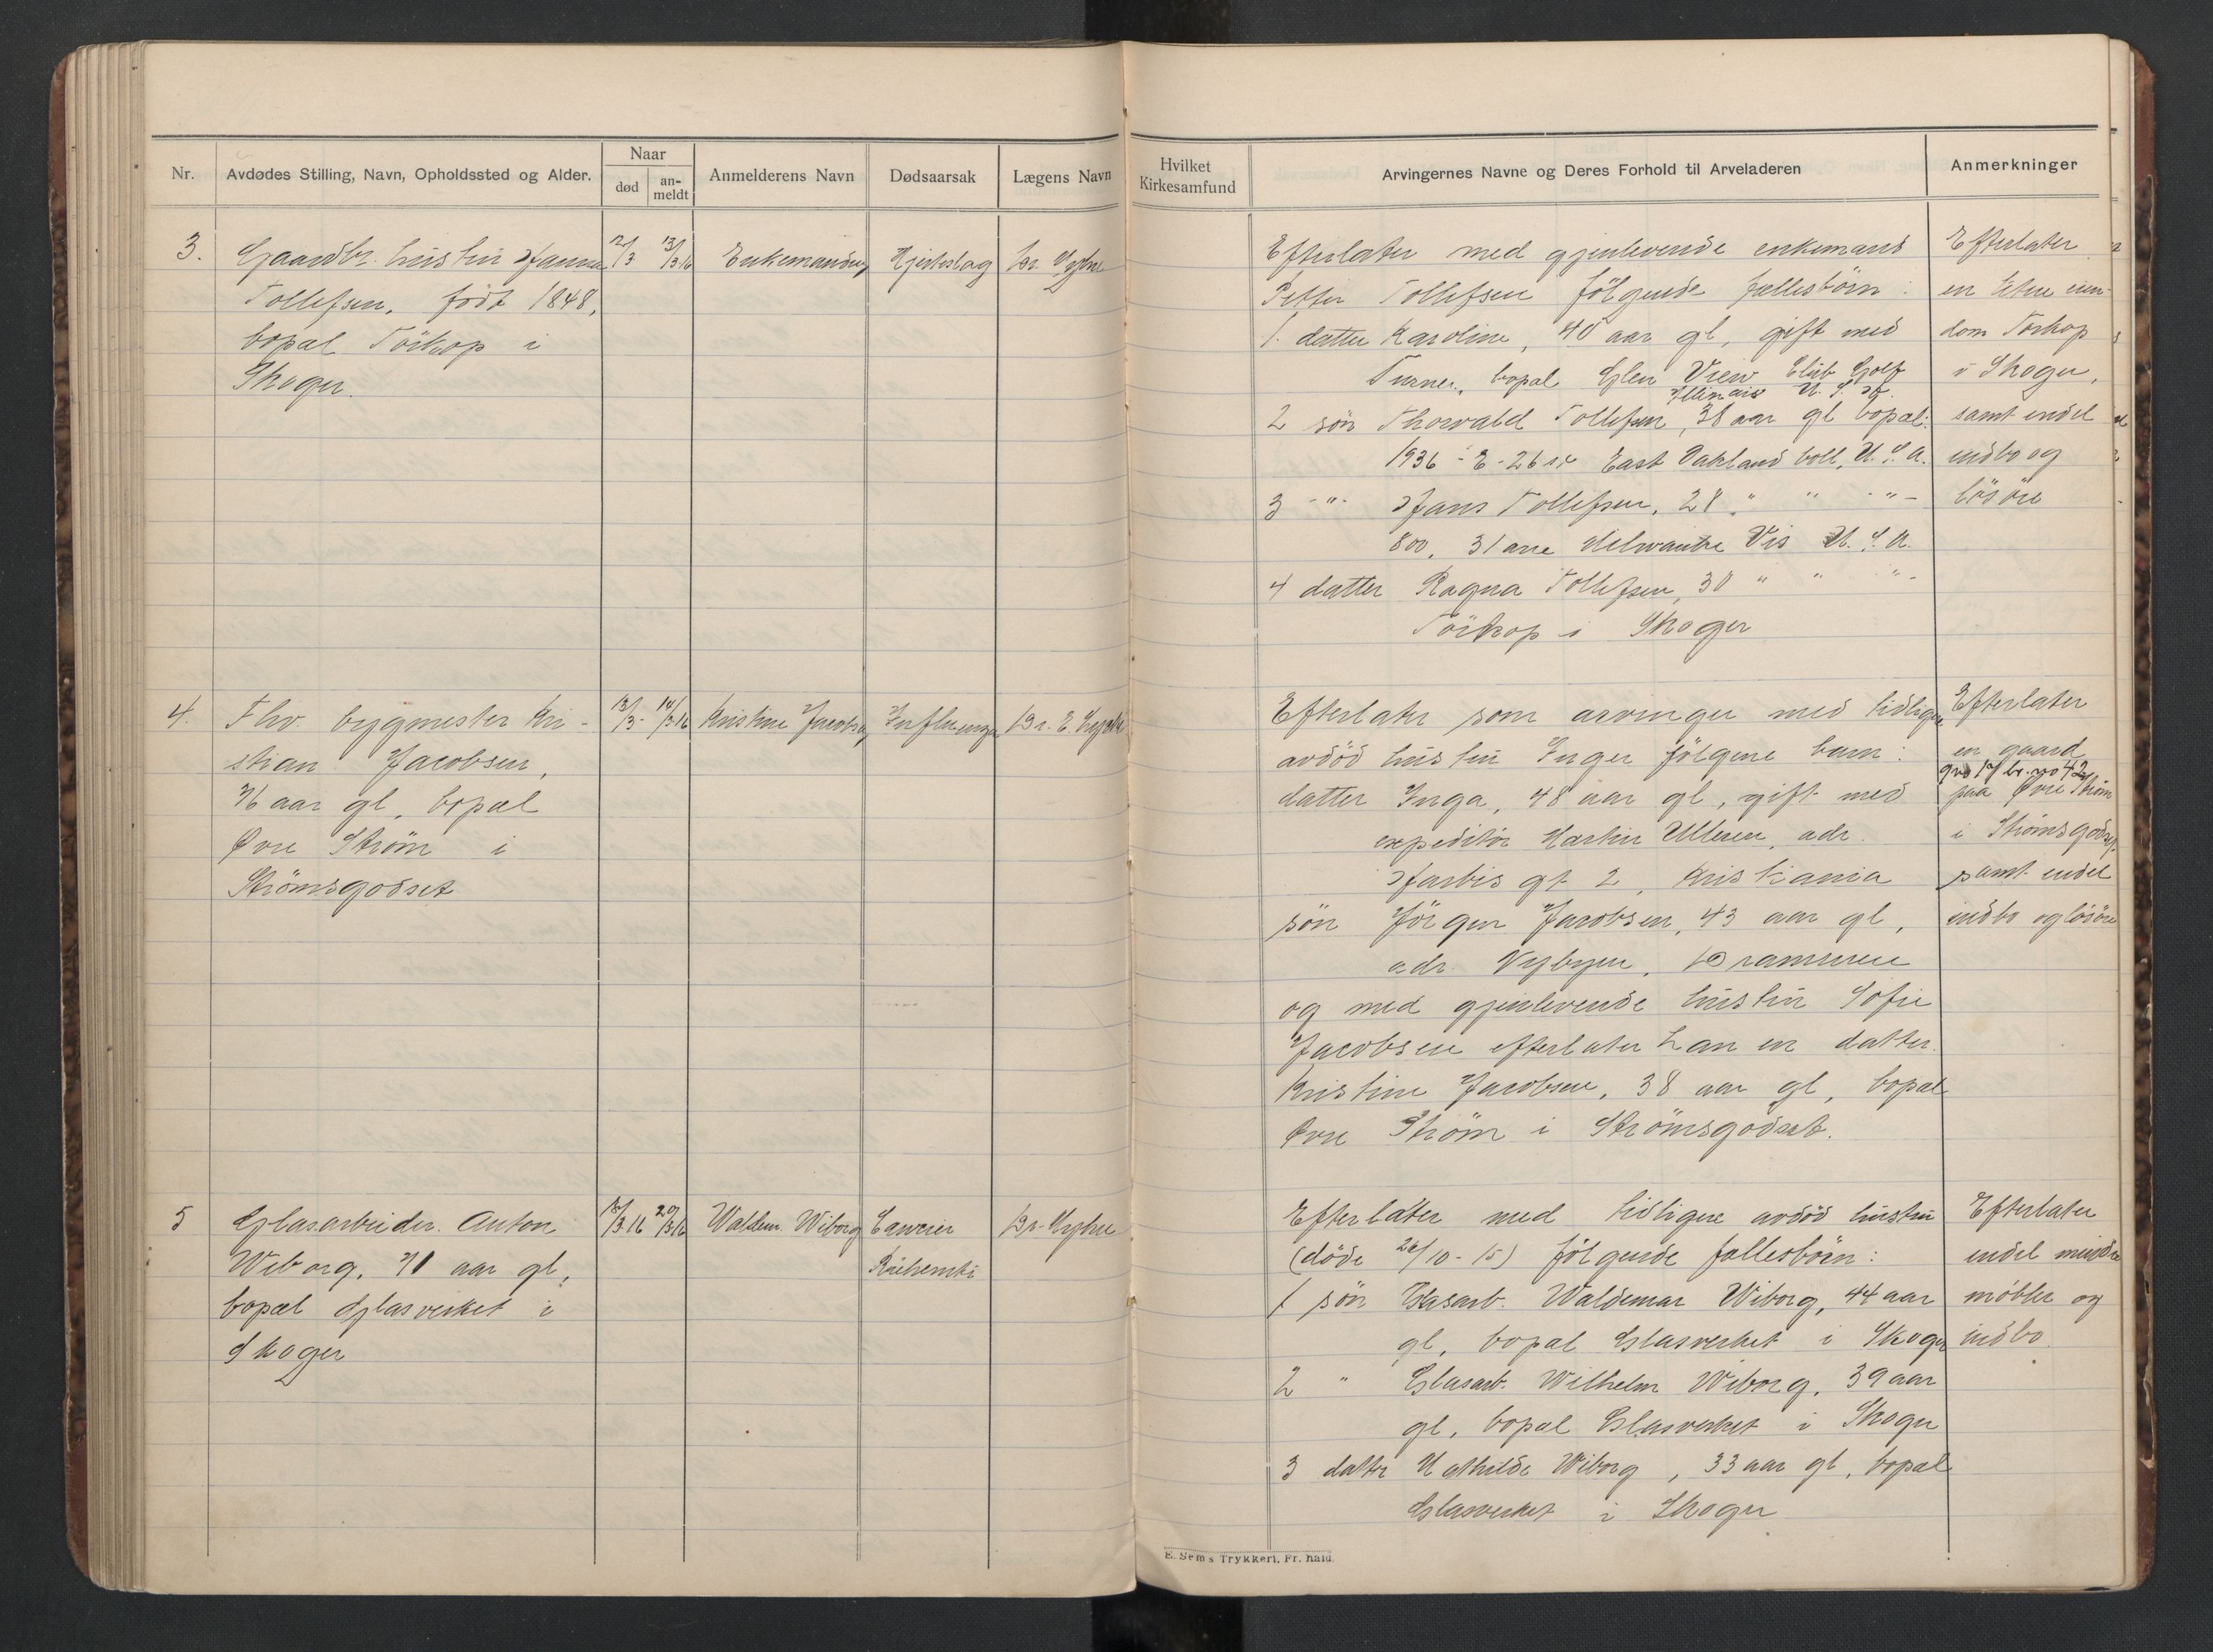 Nr.
Avdødes Stilling, Navn, Opholdssted og Alder.
Naar
død
an-
meldt
Anmelderens Navn
Dødsaarsak
Lægens Navn
Hvilket
Kirkesamfund
Arvingernes Navne og Deres Forhold til Arveladeren
Anmerkninger
3. Gaardbr. hustru Hanna
Tollefsen, født 1848,
bopal Törkop i
Skoger.
12/3 13/3 16
Enkemanden
Hjerteslag
Dr. Nyhre
Efterlater med gjenlevende enkemand
Petter Tollefsen følgende fællesbörn:
1. datter Karoline, 40 aar gl, gift med
Turner, bopal Glen View Club Golf
Illinois U. S. A.
2 sön Thorvald Tollefsen, 38 aar gl bopal:
1936 - E - 26 st East Oakland Coll, U. S. A.
3 -"- Hans Tollefsen, 28 " " -"-
800, 31 ave Milwauke Vis U. S. A.
4 datter Ragna Tollefsen, 30 " " "-
Törkop i Skoger
Efterlater
en liten eien-
dom Törkop
i Skoger,
samt endel
indbo og
lösöre
4. Fhv. bygmester Kri-
stian Jacobsen,
76 aar gl, bopal
Øvre Ström i
Strömsgodset
13/3- 14/3 16
Kristine Jacobsen
Influenza
Dr. E.
Efterlater som arvinger med tidligere
avdöd hustru Inger følgene barn:
datter Inga, 48 aar gl, gift med
expeditör Martin Ulleren, adr.
Harbis gt 2, Kristiania
sön Jörgen Jacobsen, 43 aar gl,
adr. Nybyen, Drammen
og med gjenlevende hustru Sofie
Jacobsen efterlater han en datter.
Kristine Jacobsen, 38 aar gl, bopal
Øvre Ström i Strömsgodset.
Efterlater
en gaard
gno 17 br. no 42
paa Øvre Ström
i Strömsgodset,
samt endel
indbo og lösöre
5 Glasarbeider. Anton
Wiborg, 71 aar gl,
bopal Glasverket i
Skoger
18/3 16 20/3 16
Waldem. Wiborg
Cancer
Dr. Nyhre
Efterlater med tidligere avdöd hustru
(döde 26/10 - 15) følgende fællesbörn:
1 sön Glasarb. Waldemar Wiborg, 44 aar
gl, bopal Glasverket i Skoger
2 " Glasarb. Wilhelm Wiborg, 39 aar
gl, bopal Glasverket i Skoger
3 datter Mathilde Wiborg, 33 aar gl, bopal
Glasverket i Skoger
Efterlater
endel mindre
möbler og
indbo.
E. Sem's Trykkeri, Fr.hald.